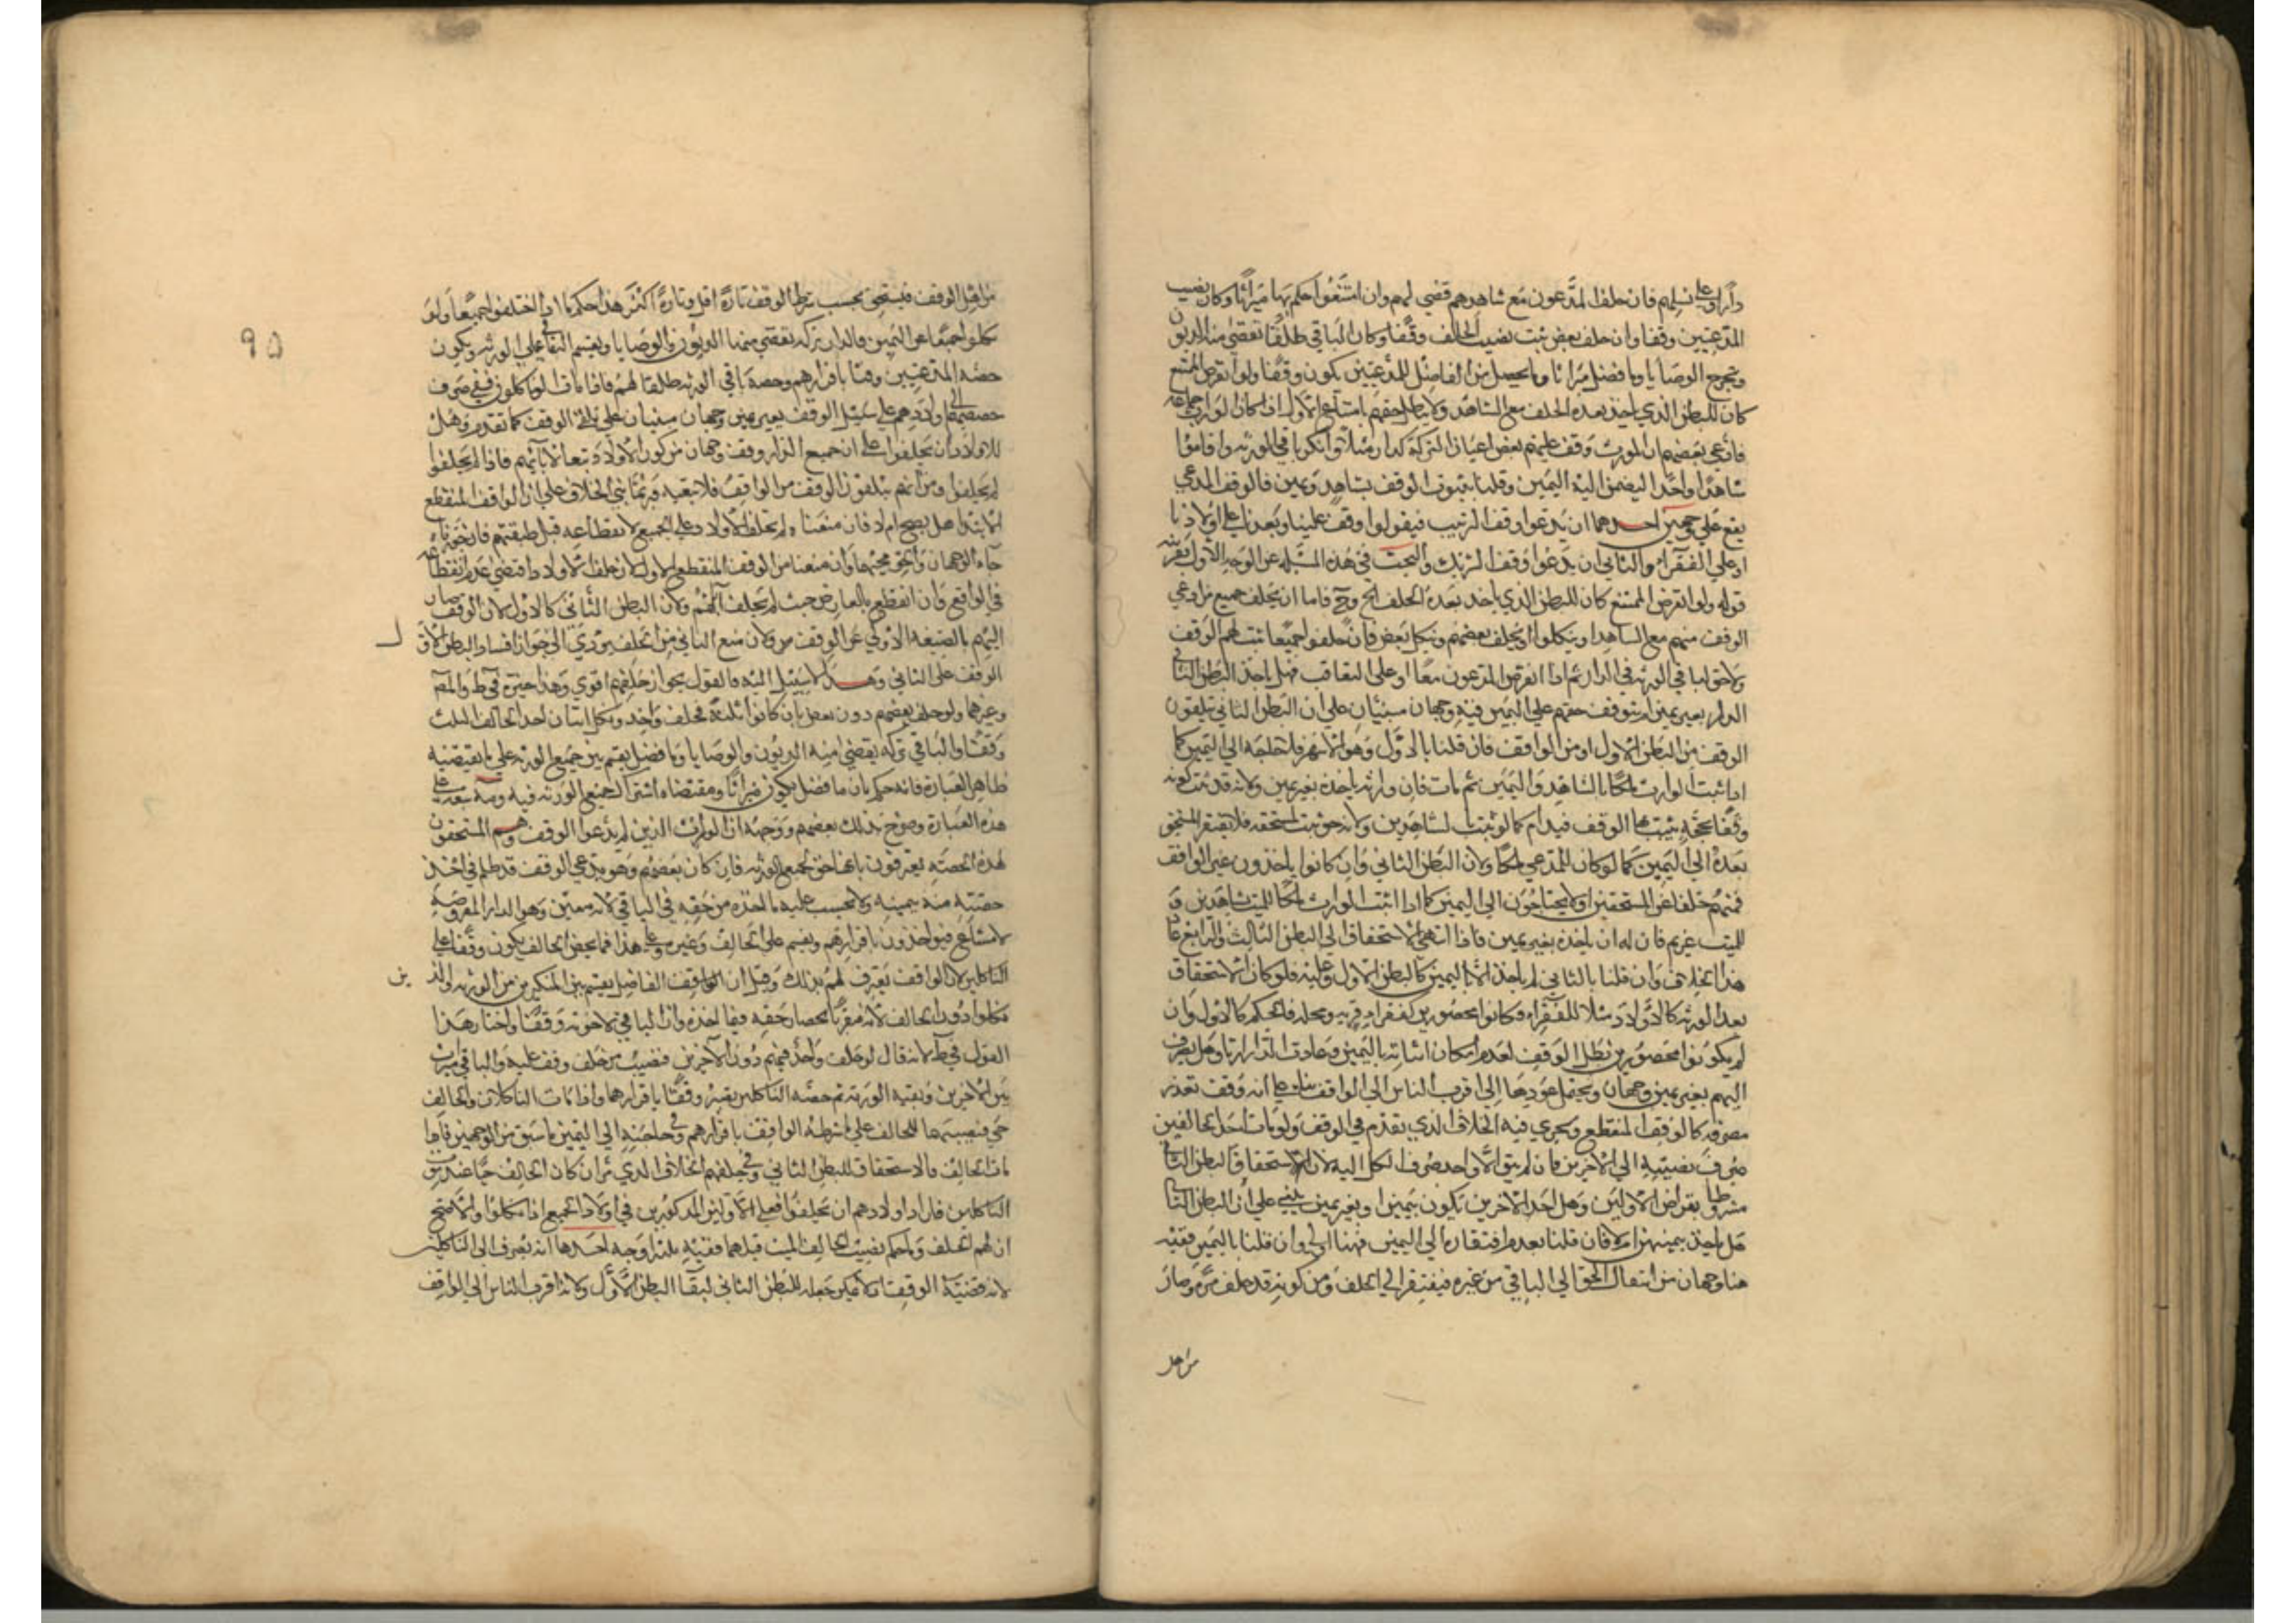 دارا وعلى نسلهم فان حلف المدعون مع شاهدهم قضي لهم وان امتنعوا حكم بها ميراثا وكان نصيب
المدعيين وقفا وان حلف بعض ثبت نصيب الحالف وقفا وكان الباقي طلقا تقضى منه الديون
وتخرج الوصايا وما فضل ميراثا وما يحصل من الفاضل للمدعيين يكون وقفا ولو انقرض الممتنع
كان للبطن الذي ياخذ بعده الحلف مع الشاهد ولا يبطل حقهم بامتناع الاول اذا كان لوارث جماعه
فادعى بعضهم ان المورث وقف عليهم بعض اعيان التركة كدار مثلا وانكر باقي الورثه واقاموا
شاهدا واحدا ليضمن اليه اليمين وقلنا بثبوت الوقف بشاهد ويمين فالوقف المدعي
يقع على وجهين احدهما ان يدعوا وقف الترتيب فيقولوا وقف علينا وبعدنا على اولادنا
او على الفقراء والثاني ان يدعوا وقف التشريك والبحث في هذه المسئله عن الوجه الاول بقرينه
قوله ولو انقرض الممتنع كان للبطن الذي ياخذ بعده الحلف الخ وح فاما ان يحلف جميع من ادعي
الوقف منهم مع الشاهد او ينكلوا او يحلف بعضهم وينكل بعض فان حلفوا جميعا ثبت لهم الوقف
ولا حق لباقي الورثه في الدار ثم اذا انقرض المدعون معا او على التعاقب فهل ياخذ البطن الثاني
الدار بغير يمين ام يتوقف حقهم على اليمين فيه وجهان مبنيان على ان البطن الثاني يتلقون
الوقف من البطن الاول او من الواقف فان قلنا بالاول وهو الاشهر فلا حاجه الى اليمين كما
اذا ثبت الوارث ملكا بالشاهد واليمين ثم مات فان وارثه ياخذه بغير يمين ولانه قد ثبت كونه
وقفا بحجة يثبت بها الوقف فيدام كما لو ثبت بالشاهدين ولانه حق ثبت لمستحقه فلا يفتقر المستحق
بعده الى اليمين كما لو كان المدعي ملكا ولان البطن الثاني وان كانوا ياخذون عن الواقف
فهم خلفا عن المستحقين اولا يحتاجون الى اليمين كما اذا اثبت الوارث ملكا للميت بشاهدين و
للميت غريم فان له ان ياخذه بغير يمين فاذا انتهى الاستحقاق الى البطن الثالث والرابع عاد
هذا الخلاف وان قلنا بالثاني لم ياخذ الا باليمين كالبطن الاول وعليه فلو كان الاستحقاق
بعد الورثه كالاولاد مثلا للفقراء وكانوا محصورين كفقراء قريه ومحله فالحكم كالاول وان
لم يكونوا محصورين بطل الوقف لعدم امكان اثباته باليمين وعادت الدار ارثا وهل يصرف
اليهم بغير يمين وجهان ويحتمل عودها الى اقرب الناس الى الواقف بناء على انه وقف تعذر
مصرفه كالوقف المنقطع ويجري فيه الخلاف الذي تقدم في الوقف ولو مات احد الحالفين
صرف نصيبه الى الاخرين فان لم يبق الا واحد صرف الكل اليه لان استحقاق البطن الثاني
مشروط بانقراض الاولين وهل اخذ الاخرين يكون بيمين او بغير يمين يبنى على ان البطن الثاني
هل ياخذ بيمينه ام لا فان قلنا بعدم افتقاره الى اليمين فهنا اولى وان قلنا باليمين ففيه
هنا وجهان من انتقال الحق الى الباقي من غيره فيفتقر الى الحلف ومن كونه قد حلف مرة وصار
من اهل
من اهل الوقف فيستحق بحسب شرط الوقف تارة اقل وتارة اكثر هذا حكم ما اذا حلفوا جميعا ولو
نكلوا جميعا عن اليمين فالدار تركه تقضى منها الديون والوصايا ويقسم الباقي على الورثه ويكون
حصه المدعيين وقفا باقرارهم وحصه باقي الورثه طلقا لهم فاذا مات الناكلون ففي صرف
حصصهم الى اولادهم على سبيل الوقف بغير يمين وجهان مبنيان على تلقي الوقف كما تقدم وهل
للاولاد ان يحلفوا على ان جميع الدار وقف وجهان من كون الاولاد تبعا لابائهم فاذا لم يحلفوا
لم يحلفوا ومن انهم يتلقون الوقف من الواقف فلا تبعيه وربما بني الخلاف على ان الوقف المنقطع
الابتدا هل يصح ام لا فان منعنا لم تحلف الاولاد على الجميع لانقطاعه قبل طبقتهم فان جوزناه
جاء الوجهان والحق مجيئهما وان منعنا من الوقف المنقطع الاول لان حلف الاولاد اقتضى عدم انقطاعه
في الواقع وان انقطع بالعارض حيث لم يحلف اباؤهم ولان البطن الثاني كالاول لان الوقف صار
اليهم بالصيغه الاولى عن الواقف ولان منع الثاني من الحلف يؤدي الى جواز افساد البطن الاول
الوقف على الثاني وهذا لا سبيل اليه فالقول بجواز حلفهم اقوى وهذا خيرة في ط والمص
وغيرهما ولو حلف بعضهم دون بعض بان كانوا ثلثة فحلف واحد ونكل اثنان اخذ الحالف الثلث
وقفا والباقي تركه يقضى منه الديون والوصايا وما فضل يقسم بين جميع الورثه على ما يقتضيه
ظاهر العبارة فانه حكم بان ما فضل يكون ميراثا ومقتضاه اشتراك جميع الورثه فيه
هذه العبارة وصرح بذلك بعضهم ووجهه ان الوارث الذين لم يدعوا الوقف وهم المستحقون
لهذه الحصه يعترفون بانها حق لجميع الورثه فان كان بعضهم وهو مدعي الوقف قد ظلم في اخذ
حصته منه بيمينه ولا يحسب عليه ما اخذه من حقه في الباقي لانه معين وهو الدار المفروضه
لا مشاع فيؤاخذون باقرارهم ويقسم على الحالف وغيره وعلى هذا فما يخص الحالف يكون وقفا على
الناكلين لان الواقف يعترف لهم بذلك وقيل ان الفاضل يقسم بين المنكرين من الورثه والذين
نكلوا دون الحالف لانه مقر بانحصار حقه فيما اخذه وان الباقي لاخوته وقفا واختار هذا
القول في ط لانه قال لو حلف واحد منهم دون الاخرين فنصيب من حلف وقف عليه والباقي ميراث
بين الاخرين وبقيه الورثه ثم حصه الناكلين يصير وقفا باقرارهما واذا مات الناكلان والحالف
حي فنصيبهما للحالف على ما شرطه الواقف باقرارهم وفي حاجته الى اليمين ما سبق من الوجهين فاذا
مات الحالف فالاستحقاق للبطن الثاني وفي حلفهم الخلاف الذي مر وان كان الحالف حيا عند موت
الناكلين فاراد اولادهم ان يحلفوا فعلى الاولين المذكورين في اولاد الجميع اذا نكلوا والاصح
ان لهم الحلف وما حكم نصيب الحالف الميت قبلهما ففيه ثلثة اوجه احدها انه يصرف الى الناكلين
لانه قضيه الوقف ولا يمكن جعله للبطن الثاني لبقاء البطن الاول ولانه اقرب الناس الى الواقف